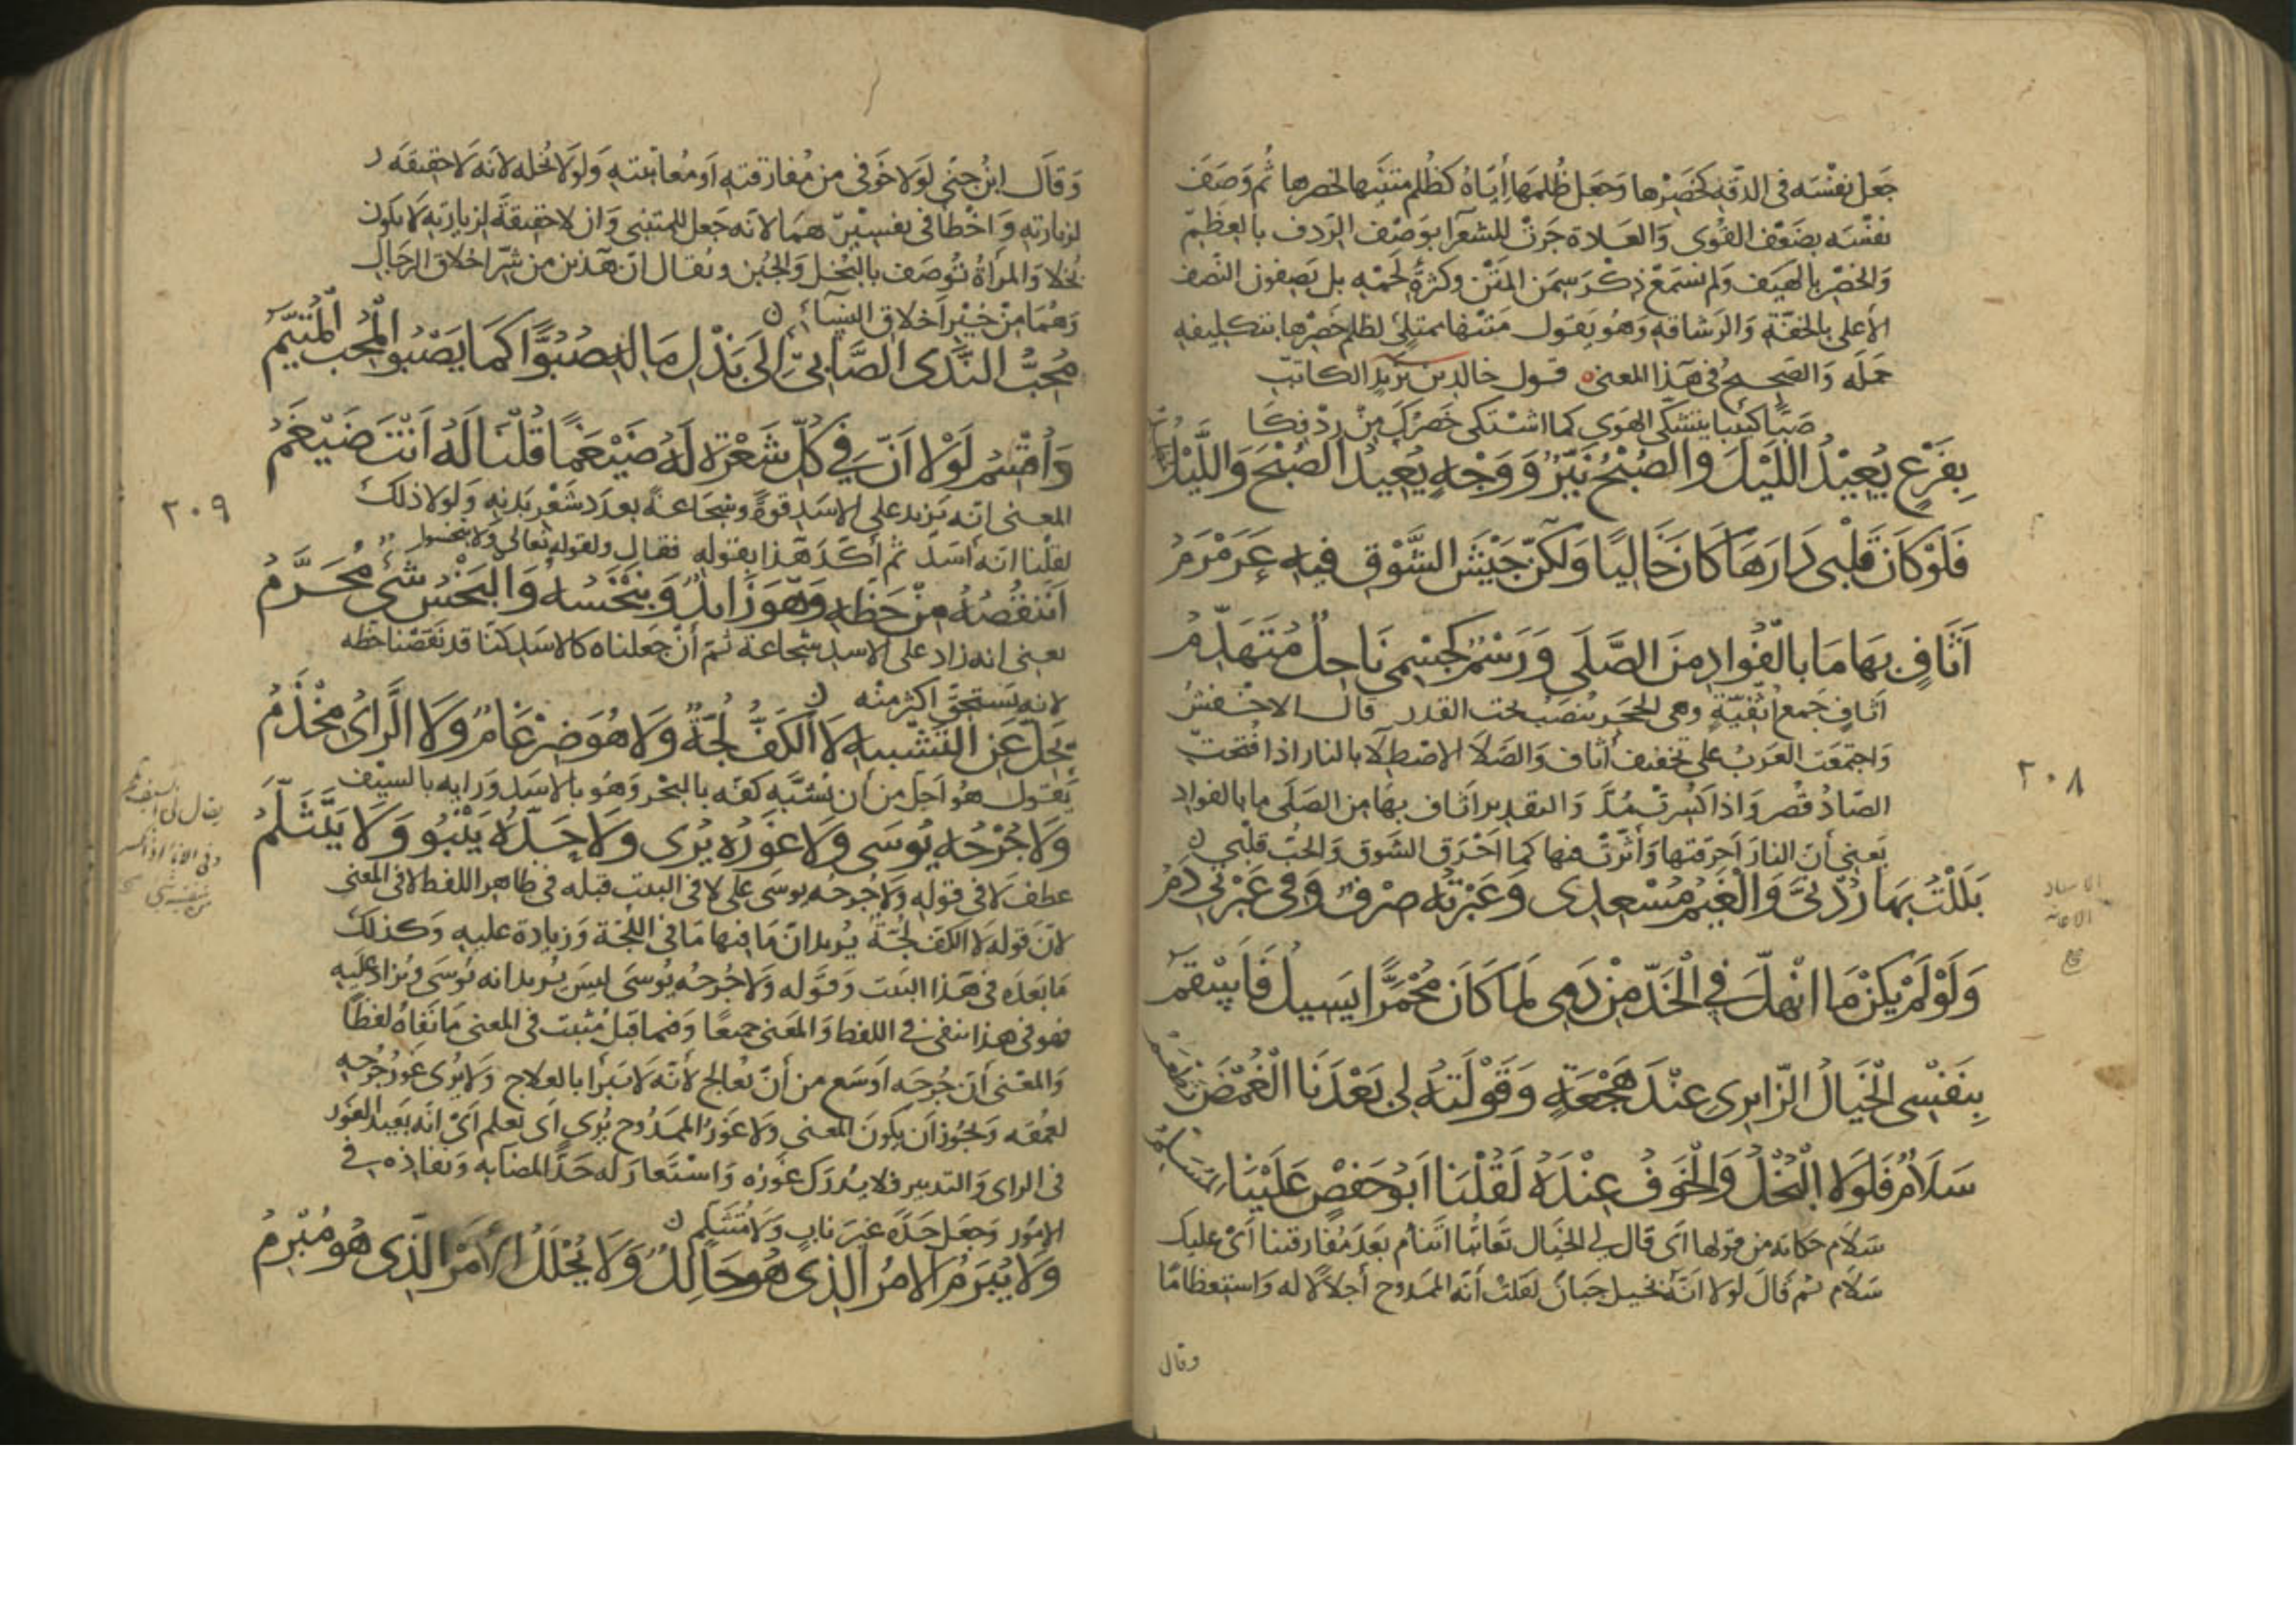 جعل نفسه فى الدقة كخصرها وجعل ظلمها اياه كظلم متنها لخصرها ثم وصف
نفسه بضعف القوى والعادة جرت للشعرا بوصف الردف بالعظم
والخصر بالهيف ولم نسمع ذكر سمن المتن وكثرة لحمه بل يصفون النصف
الأعلى بالخفة والرشاقة وهو يقول متنها ممتلئ لظلم خصرها بتكليفه
حمله والصحيح فى هذا المعنى قول خالد بن يزيد الكاتب
صبا كئيبا يتشكى الهوى كما اشتكى خصرك من ردفكا
بِفَرْعٍ يُعِيْدُ اللَّيْلَ وَالصُّبْحُ نَيِّرٌ وَوَجْهٍ يُعِيدُ الصُّبْحَ وَاللَّيْلُ
فَلَوْ كَانَ قَلْبِى دَارَهَا كَانَ خَالِيًا وَلكِنَّ جَيْشَ الشَّوْقِ فِيهِ عَرَمْرَمُ
أَثَافٍ بِهَا مَا بِالْفُوَادِ مِنَ الصَّلَى وَرَسْمٌ كَجِسْمِى نَاحِلٌ مُتَهَدِّمُ
اثاف جمع اثفية وهى الحجر ينصب تحت القدر قال الاخفش
واجتمعت العرب على تخفيف أثاف والصلا الاصطلا بالنار اذا فتحت
الصاد قصر واذا كسرت مد والتقدير اثاف بها من الصلى ما بالفواد
يعنى أن النار احرقتها وأثرت فيها كما احرق الشوق والحب قلبى
بَلَلْتُ بِهَا رُدْنَىَّ وَالْغَيْمُ مُسْعِدِى وَعَبْرَتُهُ صِرْفٌ وَفِى عَبْرَتِى دَمُ
وَلَوْ لَمْ يَكُنْ مَا انْهَلَّ فِى الْخَدِّ مِنْ دَمِى لَمَا كَانَ مُحْمَرًّا يَسِيلُ فَاَسْقَمُ
بِنَفْسِى الْخَيَالُ الزَّايِرِى عِنْدَ هَجْعَةٍ وَقَوْلَتُهُ لِى بَعْدَنَا الْغُمْضَ تَطْعَمُ
سَلَامٌ فَلَوْلَا الْبُخْلُ وَالْخَوْفُ عِنْدَهُ لَقُلْنَا اَبُو حَفْصٍ عَلَيْنَا الْمُسَلِّمُ
سلام حكاية من قولها اى قال لى الخيال تعاتبا اتنام بعد مفارقتنا أى عليك
سلام ثم قال لولا انه بخيل جبان لقلت أنه الممدوح اجلالا له واستعظاما
وقال
٢٠٨
وقال ابن جنى لولا خوفى من مفارقته أو معاتبته ولولا بخله لانه لا حقيقة
لزيارته واخطا فى تفسيرهما لانه جعل المتنبى وان لا حقيقة لزيارته لا يكون
بخلا والمرأة توصف بالبخل والجبن ويقال ان هذين من شر اخلاق الرجال
وهما من خير اخلاق النساء
مُحِبُّ النَّدَى الصَّابِى إِلَى بَذْلِ مَالِهِ صُبُوًّا كَمَا يَصْبُو الْمُحِبُّ الْمُتَيَّمُ
وَاُقْسِمُ لَوْلَا اَنَّ فِى كُلِّ شَعْرَةٍ لَهُ ضَيْغَمًا قُلْنَا لَهُ اَنْتَ ضَيْغَمُ
المعنى انه يزيد على الاسد قوة وشجاعة بعدد شعر بدنه ولولا ذلك
لقلنا انه أسد ثم أكد هذا بقوله فقال ولقوله تعالى ولا تبخسوا
اَنَنْقُصُهُ مِنْ حَظِّهِ وَهْوَ زَايِدٌ وَنَبْخَسُهُ وَالْبَخْسُ شَىْءٌ مُحَرَّمُ
يعنى انه زاد على الاسد شجاعة ثم أن جعلناه كالاسد كنا قد نقصنا حظه
لانه يستحق اكثر منه
يَجِلُّ عَنِ التَّشْبِيهِ لَا الْكَفُّ لُجَّةٌ وَلَا هُوَ ضِرْغَامٌ وَلَا الرَّاىُ مِخْذَمُ
يقول هو اجل من أن نشبه كفه بالبحر وهو بالاسد ورايه بالسيف
وَلَا جُرْحُهُ يُوسَى وَلَا غَوْرُهُ يُرَى وَلَا حَدُّهُ يَنْبُو وَلَا يَتَثَلَّمُ
عطف لا فى قوله ولا جرحه يوسى على لا فى البيت قبله فى ظاهر اللفظ لا فى المعنى
لان قوله لا الكف لجة يريد ان ما فيها ما فى اللجة وزيادة عليه وكذلك
ما بعده فى هذا البيت وقوله ولا جرحه يوسى ليس يريد انه يوسى ويزاد عليه
فهو فى هذا ينفى فى اللفظ والمعنى جميعا وفيما قبل مثبت فى المعنى ما نفاه لفظا
والمعنى أن جرحه اوسع من أن يعالج لأنه لا يبرأ بالعلاج ولا يرى غور جرحه
لعمقه ويجوز ان يكون المعنى ولا غور الممدوح يرى اى يعلم اى انه بعيد الغور
فى الراى والتدبير فلا يدرك غوره واستعار له حدا لمضايه ونفاذه فى
الامور وجعل حده غير ناب ولا متثلم
وَلَا يُبْرَمُ الْامْرُ الَّذِى هُوَ حَالِلٌ وَلَا يُحْلَلُ الْأَمْرُ الَّذِى هُوَ مُبْرِمُ
٢٠٩